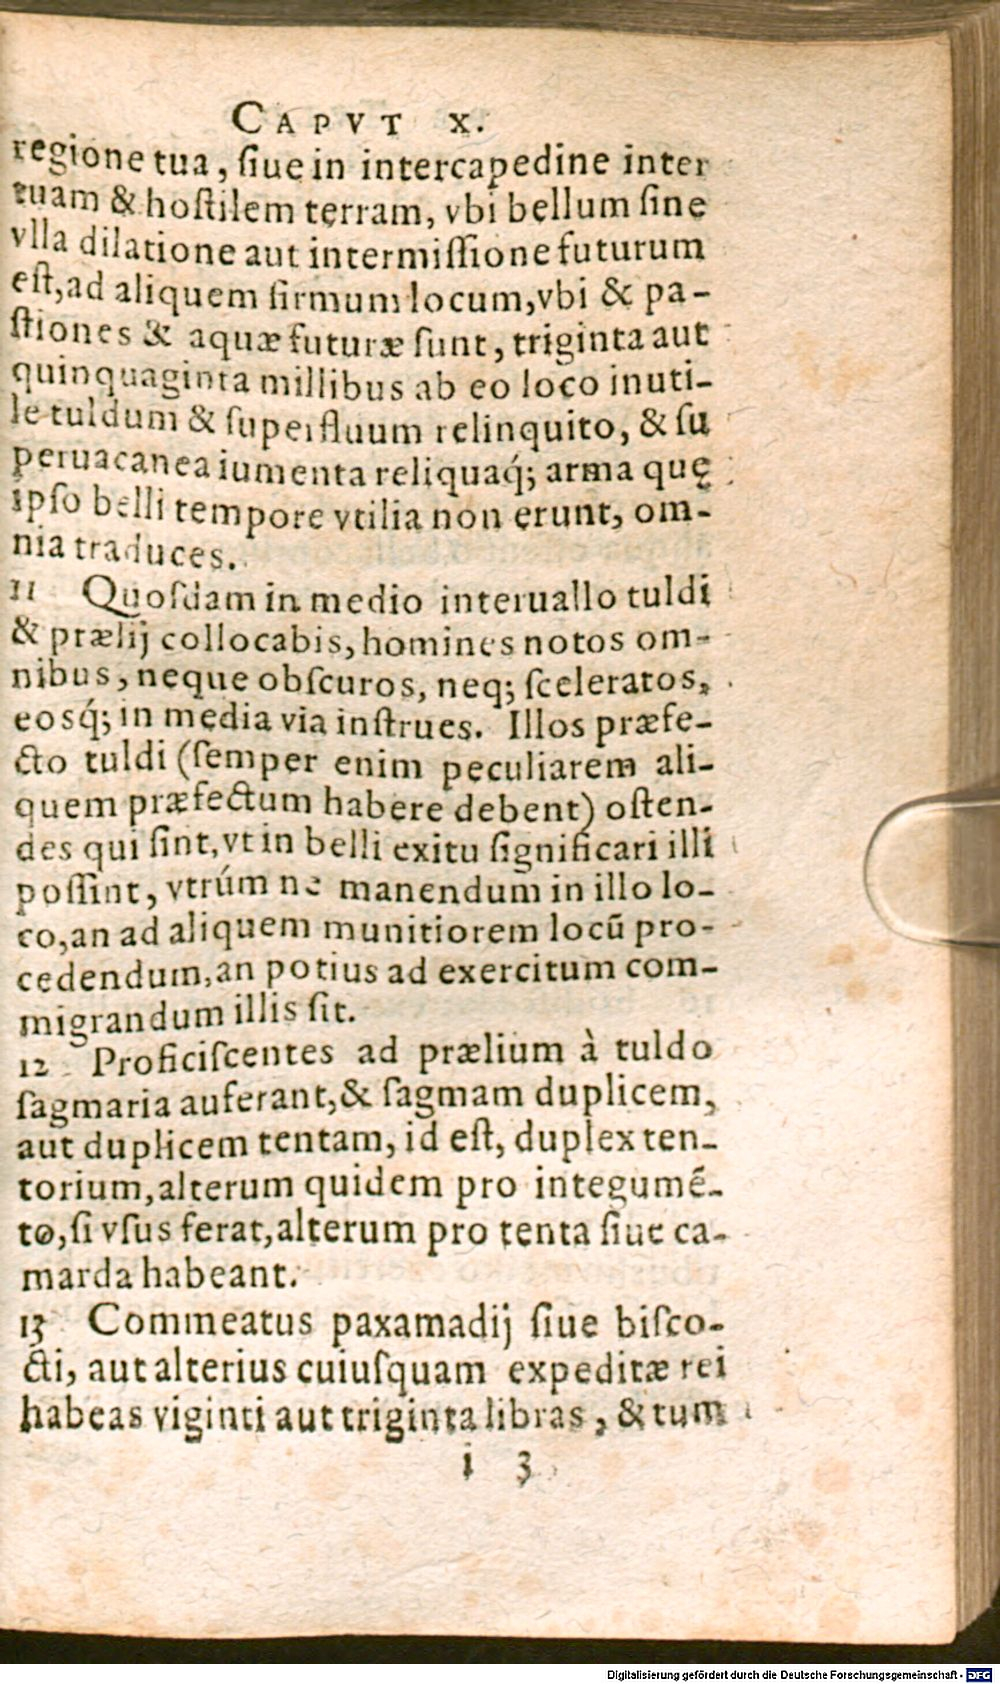 CAPVT X.
regione tua, ſiue in intercapedine inter
tuam & hoſtilem terram, vbi bellum ſine
vlla dilatione aut intermiſſione futurum
eſt, ad aliquem firmum locum, vbi & pa-
ſtiones & aquæ futuræ ſunt, triginta aut
quinquaginta millibus ab eo loco inuti-
le tuldum & ſuperfluum relinquito, & ſu
peruacanea iumenta reliquaq́; arma quę
ipſo belli tempore vtilia non erunt, om-
nia traduces.
11 Quoſdam in medio interuallo tuldi
& prælij collocabis, homines notos om-
nibus, neque obſcuros, neq; ſceleratos,
eosq́; in media via inſtrues. Illos præfe-
cto tuldi (ſemper enim peculiarem ali-
quem præfectum habere debent) oſten-
des qui ſint, vt in belli exitu ſignificari illi
poſſint, vtrúm ne manendum in illo lo-
co, an ad aliquem munitiorem locū pro-
cedendum, an potius ad exercitum com-
migrandum illis ſit.
12 Proficiſcentes ad prælium à tuldo
ſagmaria auferant, & ſagmam duplicem,
aut duplicem tentam, id eſt, duplex ten-
torium, alterum quidem pro integumē-
to, ſi vſus ferat, alterum pro tenta ſiue ca-
marda habeant.
13 Commeatus paxamadij ſiue biſco-
cti, aut alterius cuiuſquam expeditæ rei
habeas viginti aut triginta libras, & tum
i 3
Digitalisierung gefördert durch die Deutsche Forschungsgemeinschaft - DFG